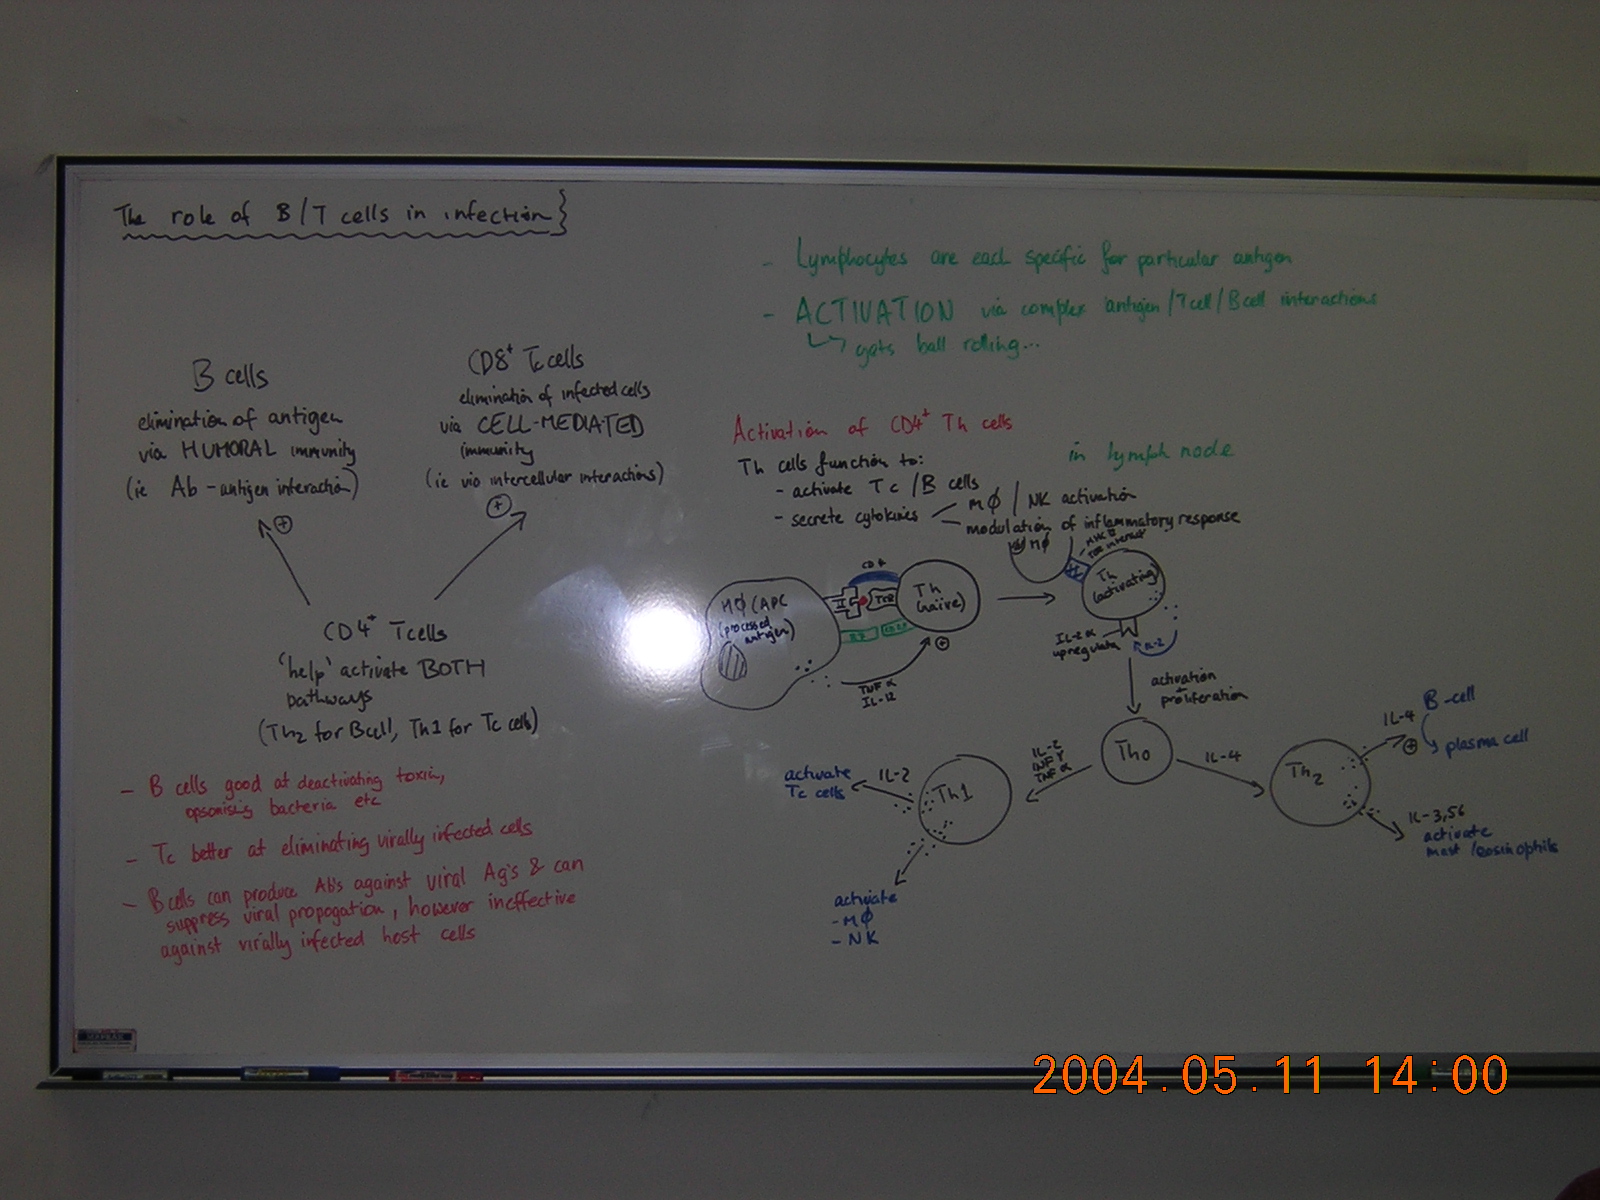 The role of B/T cells in infection
- Lymphocytes are each specific for particular antigen
- ACTIVATION via complex antigen/Tcell/Bcell interactions
gets ball rolling...
B cells
elimination of antigen
via HUMORAL immunity
(ie Ab-antigen interaction)
CD8+ Tc cells
elimination of infected cells
via CELL-MEDIATED
immunity
(ie via intercellular interactions)
+
+
CD4+ Tcells
'help' activate BOTH
pathways
(Th2 for Bcell, Th1 for Tc cells)
- B cells good at deactivating toxin,
opsonising bacteria etc
- Tc better at eliminating virally infected cells
- Bcells can produce Ab's against viral Ag's & can
suppress viral propogation, however ineffective
against virally infected host cells
Activation of CD4+ Th cells
in lymph node
Th cells function to:
- activate Tc/B cells
- secrete cytokines
MØ/NK activation
modulation of inflammatory response
MØ
MHC II
TCR
CD4
MØ (APC
(processed
antigen)
II
TcR
B7
CD28
Th
(naive)
+
TNF α
IL-12
Th
(activating)
IL-2 α
upregulata
IL-2
activation
+
proliferation
Tho
IL-2
INF γ
TNF α
IL-4
Th1
IL-2
activate
Tc cells
activate
- MØ
- NK
Th2
IL-4
+
B-cell
plasma cell
IL-3,56
activate
mast/eosinophils
2004.05.11 14:00